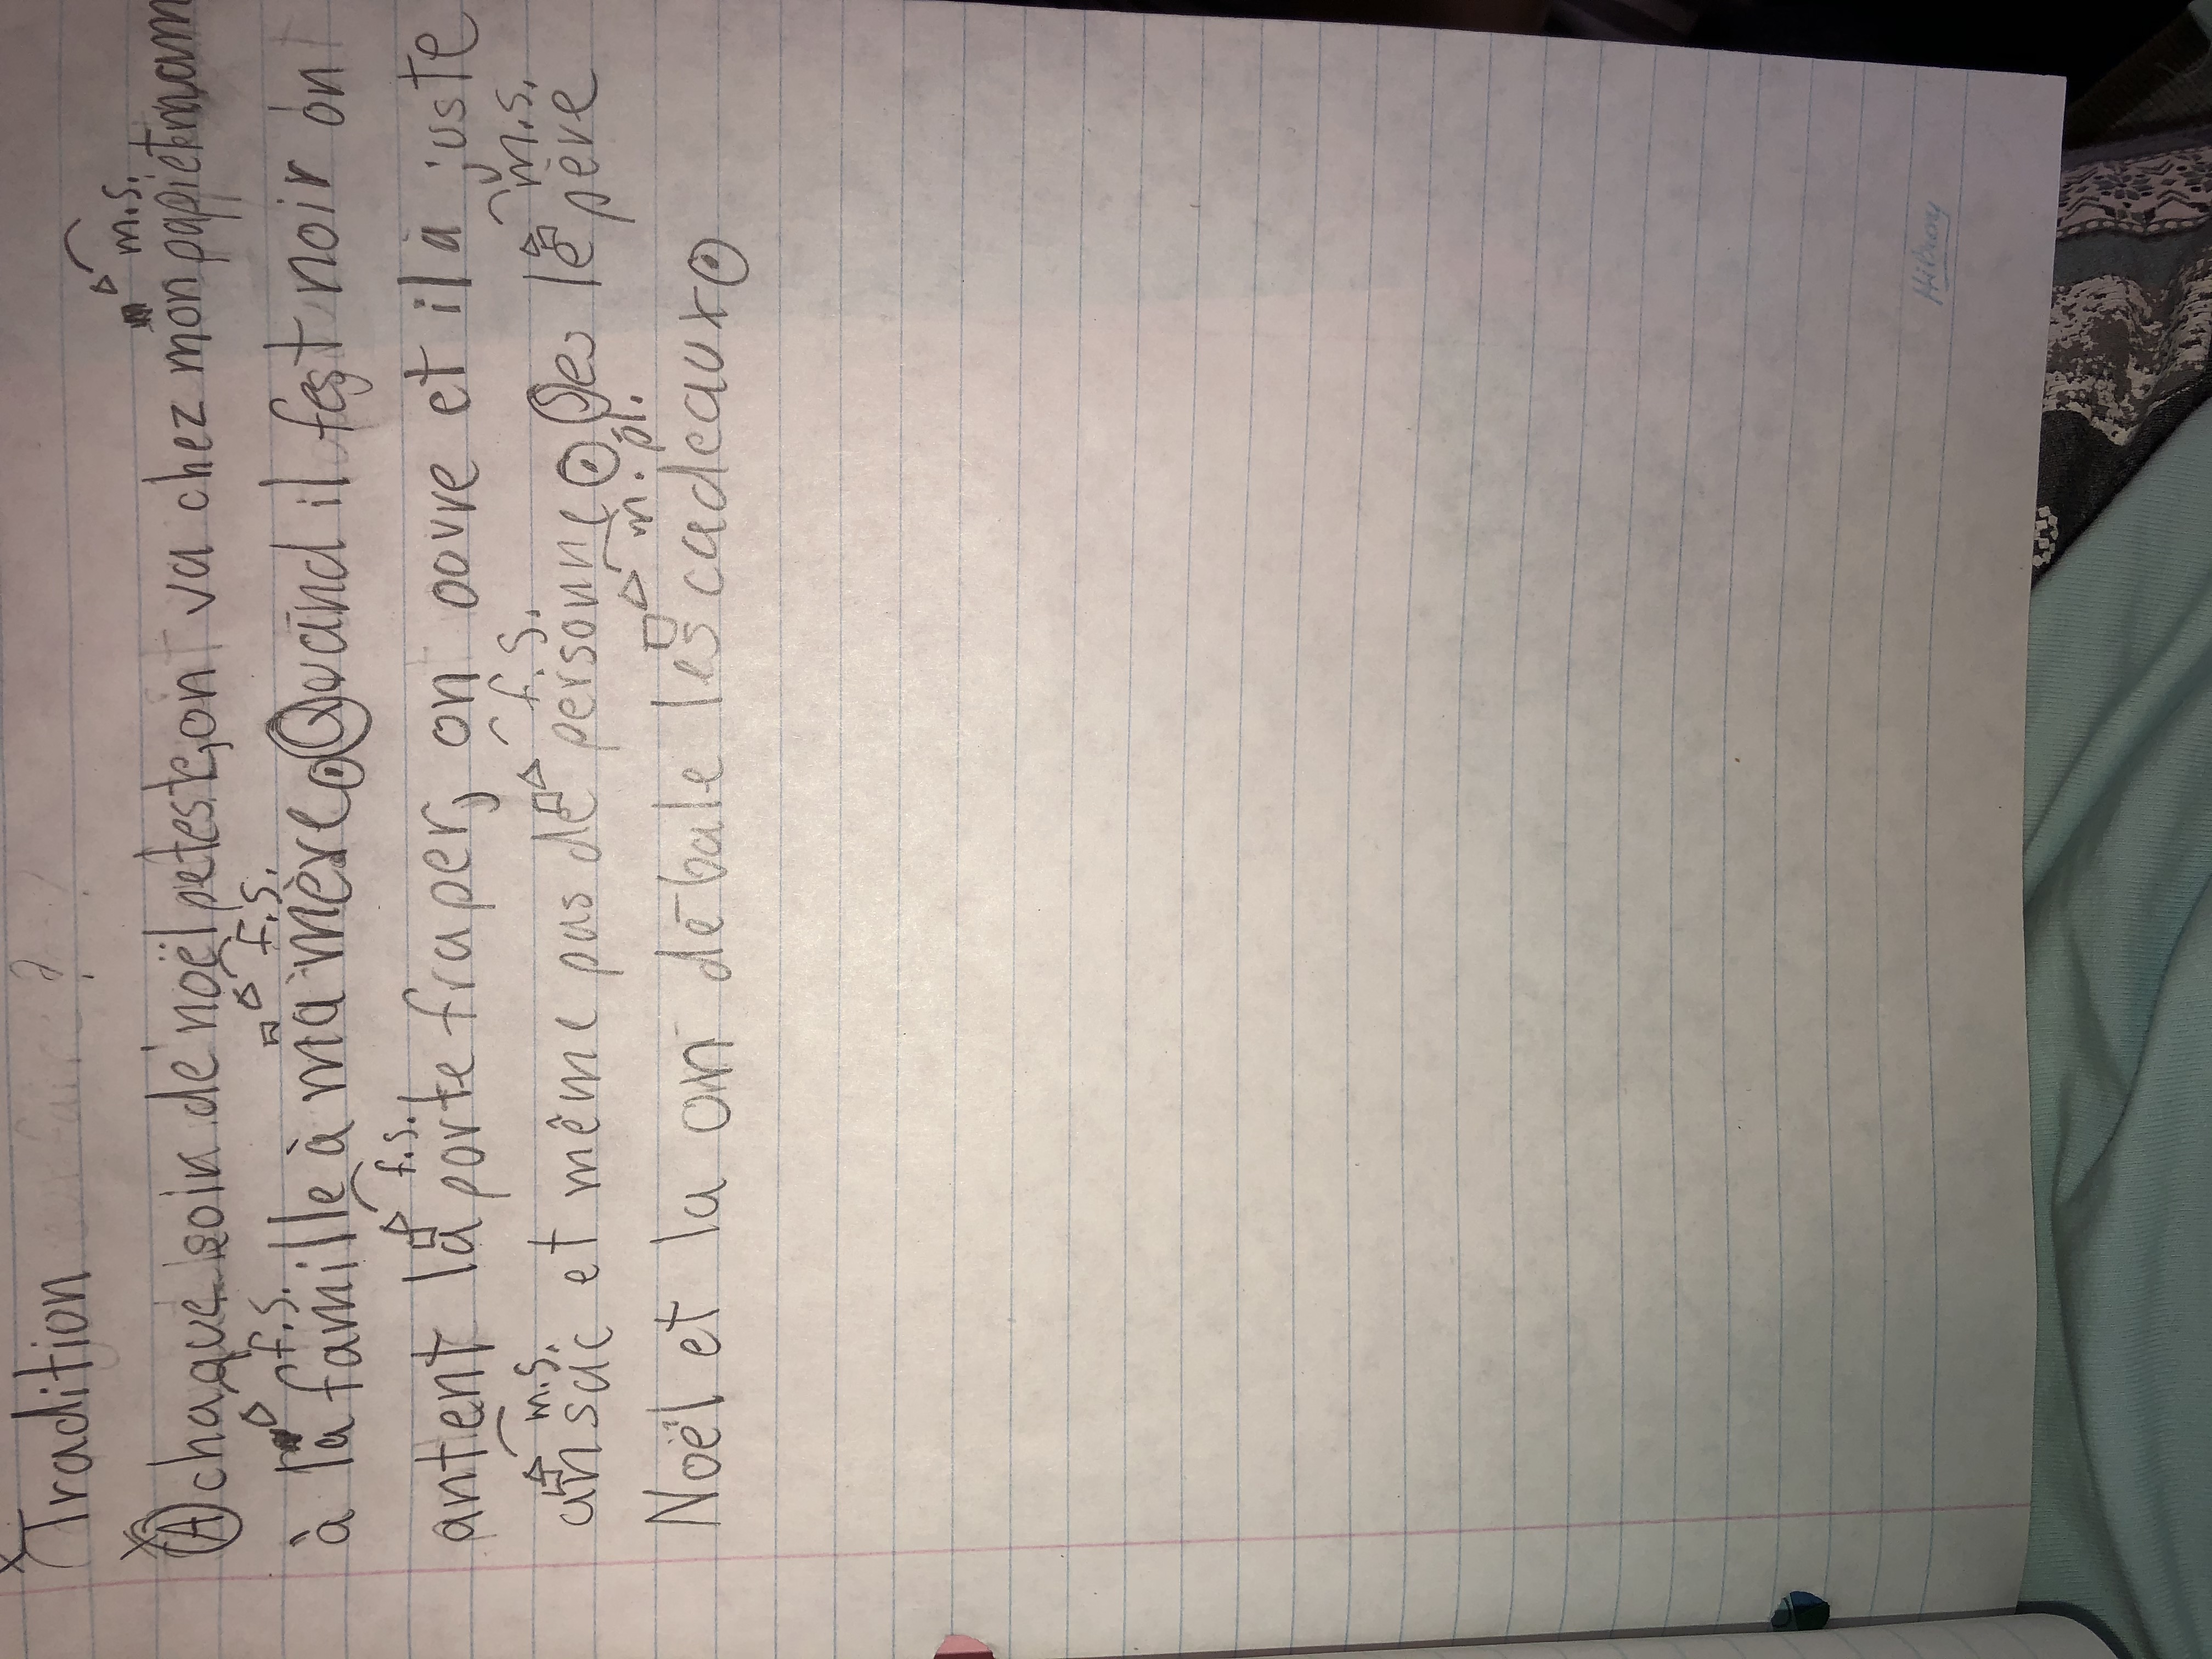 Tradition
m.s.
A chaque de noël peteste, ont va chez mon papi et mam
f.s. f.s.
à la famille à ma mère. Quand il fest noir ont
f.s.
antent la porte fraper, on oovre et il a juste
m.s. f.s. m.s.
un sac et même pas de personne. Ces le père
m. pl.
Noël et la on débale les cadeaux.
Hilroy